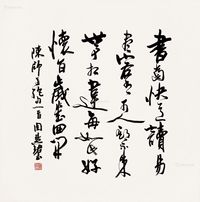 書當快意讀易
盡客有可人期不來
世事相違每如此好
懷百歲幾回開
陳師道一首周慧珺